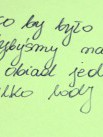 to by było
żebyśmy na
obiad jed
lko lody